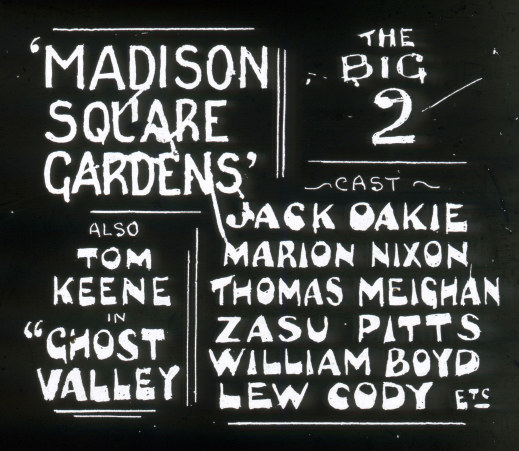 'MADISON
SQUARE
GARDENS'
THE
BIG
2
~CAST~
JACK OAKIE
MARION NIXON
THOMAS MEIGHAN
ZASU PITTS
WILLIAM BOYD
LEW CODY ETC
ALSO
TOM
KEENE
IN
"GHOST
VALLEY